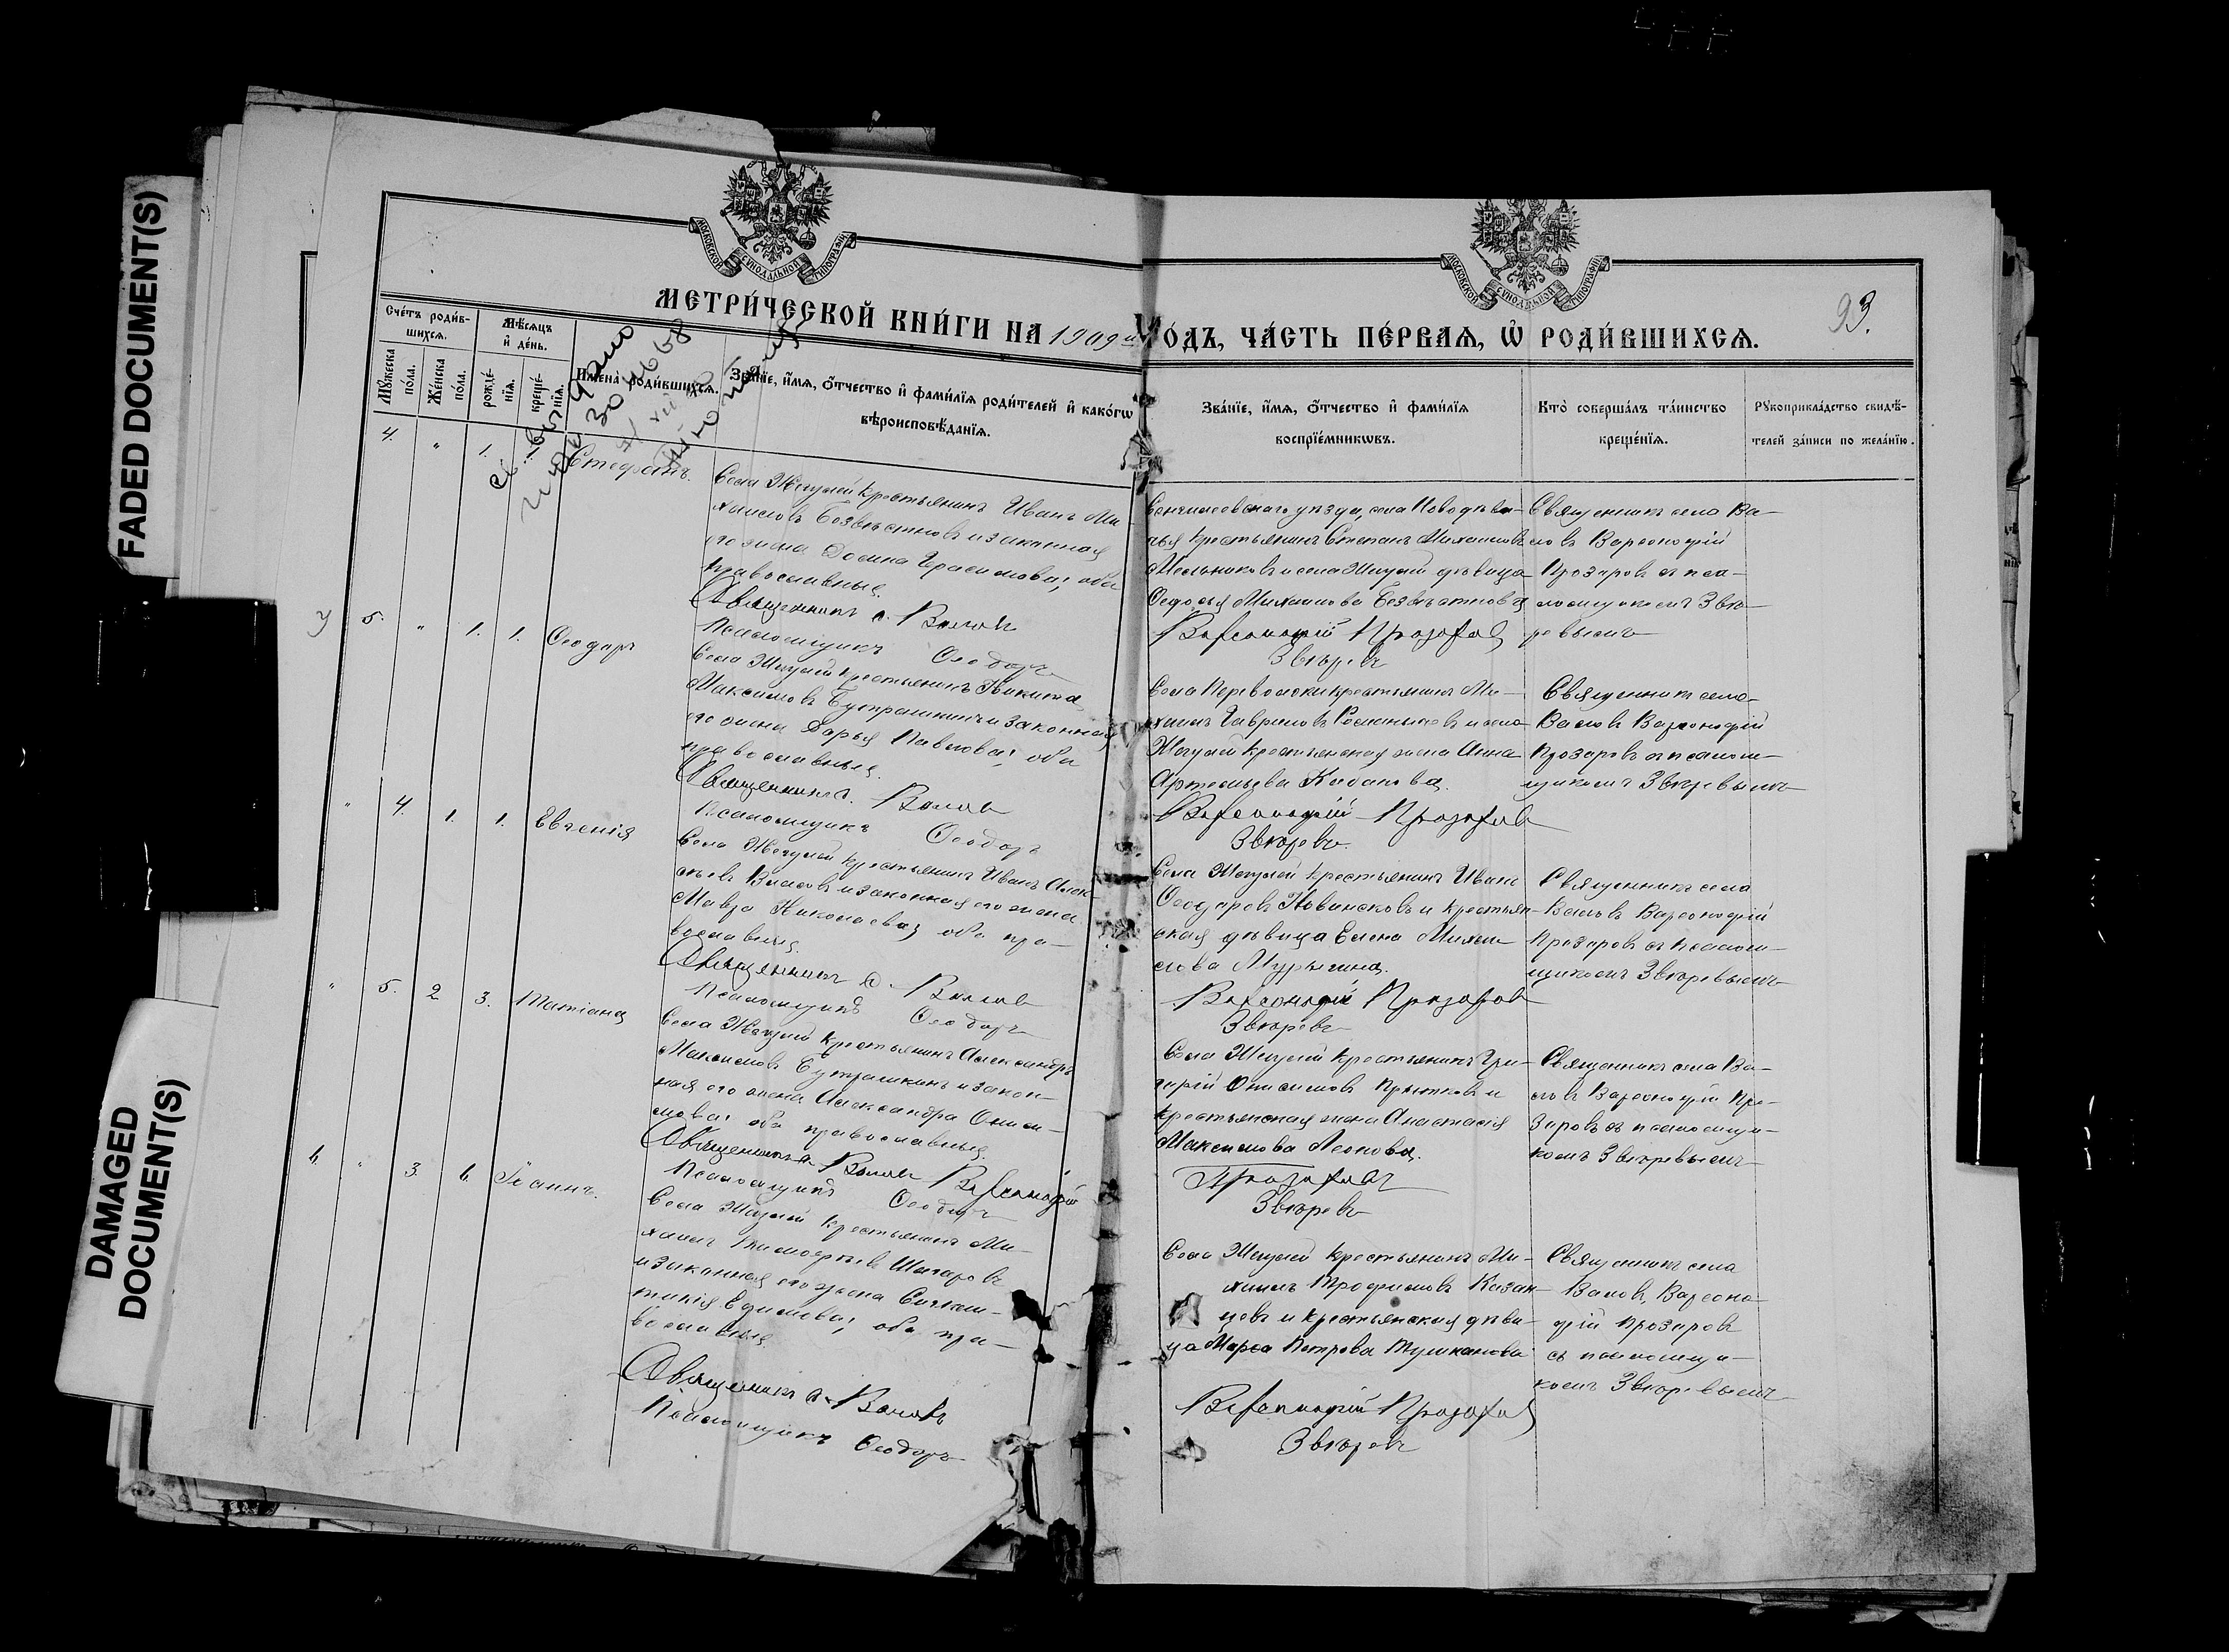 FADED DOCUMENT(S)
DAMAGED
DOCUMENT(S)
МОСКОВСКОЙ СѴНОДАЛЬНОЙ ТИПОГРАФІИ
МОСКОВСКОЙ СѴНОДАЛЬНОЙ ТИПОГРАФІИ
93.
МЕТРИ́ЧЕСКОЙ КНИ́ГИ НА 1909й ГОДЪ, ЧА́СТЬ ПЕ́РВАЯ, Ѡ РОДИ́ВШИХСЯ.
Сче́тъ роди́в-
шихся.
Мѣ́сяцъ
и҆ де́нь.
Мꙋ́жеска
по́ла.
Же́нска
по́ла.
рожде́-
нїя.
креще́-
нїя.
Имена̀ роди́вшихся.
Зва́нїе, и҆́мя, ѻ҆́тчество и҆ фами́лїя роди́телей и҆ како́гѡ
вѣроисповѣ́данїя.
Зва́нїе, и҆́мя, ѻ҆́тчество и҆ фами́лїя
воспрїе́мникѡвъ.
Кто̀ соверша́лъ та́инство
креще́нїя.
Рꙋкоприкла́дство свидѣ́-
телей за́писи по жела́нїю.
4. " 1. 1. Стефанъ.
Села Жегулей крестьянинъ Иванъ Ми-
хаиловъ Безвѣстновъ и законная
его жена Герасимова; оба
православные.
Священникъ с. Валовъ
Псаломщикъ Ѳеодоръ
Сенгилеевскаго уѣзда, села Новодѣви-
чья крестьянинъ Степанъ Михаиловъ
Мельниковъ и села Жегулей дѣвица
Ѳедосья Михаилова Безвѣстнова
Варсонофій Прозоровъ
Звѣревъ
Священникъ села Ва-
ловъ Варсонофій
Прозоровъ съ пса-
ломщикомъ Звѣ-
ревымъ
5. " 1. 1. Ѳеодоръ
Села Жегулей крестьянинъ Никита
Максимовъ и законная
его жена Дарья Павлова; оба
православные.
Священникъ с. Валовъ
Псаломщикъ Ѳеодоръ
Села Переволоки крестьянинъ Ми-
хаилъ Гавриловъ и села
Жегулей крестьянская жена Анна
Артемьева
Варсонофій Прозоровъ
Звѣревъ
Священникъ села
Валовъ Варсонофій
Прозоровъ съ псалом-
щикомъ Звѣревымъ
" 4. 1. 1. Евгенія
Села Жегулей крестьянинъ Иванъ Алек-
сѣевъ Власовъ и законная его жена
Мавра Николаева; оба пра-
вославные.
Священникъ с. Валовъ
Псаломщикъ Ѳеодоръ
Села Жегулей крестьянинъ Иванъ
Ѳеодоровъ и крестьян-
ская дѣвица Елена Михаи-
лова
Варсонофій Прозоровъ
Звѣревъ
Священникъ села
Валовъ Варсонофій
Прозоровъ съ псалом-
щикомъ Звѣревымъ
" 5. 2. 3. Татіана
Села Жегулей крестьянинъ Александръ
Максимовъ и закон-
ная его жена Александра Ониси-
мова; оба православные.
Священникъ с. Валовъ Варсонофій
Псаломщикъ Ѳеодоръ
Села Жегулей крестьянинъ Гри-
горій Онисимовъ и
крестьянская жена Анастасія
Максимова Леонова.
Прозоровъ
Звѣревъ
Священникъ села Ва-
ловъ Варсонофій Про-
зоровъ съ псаломщи-
комъ Звѣревымъ
6. " 3. 6. Іоаннъ.
Села Жегулей крестьянинъ Ми-
хаилъ Тимоѳеевъ
и законная его жена
Ефимова; оба пра-
вославные.
Священникъ с. Валовъ
Псаломщикъ Ѳеодоръ
Села Жегулей крестьянинъ Ми-
хаилъ Трофимовъ Казан-
цевъ и крестьянская дѣви-
ца Марѳа Петрова Тушканова
Варсонофій Прозоровъ
Звѣревъ
Священникъ села
Валовъ, Варсоно-
фій Прозоровъ
съ псаломщи-
комъ Звѣревымъ